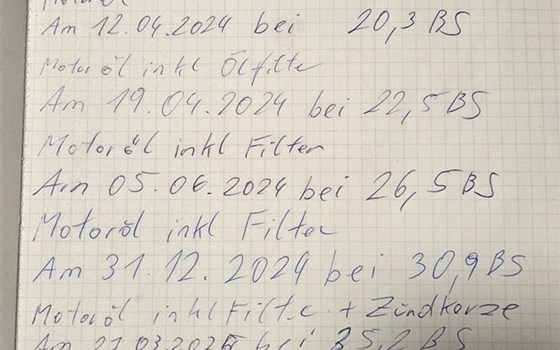 Motoröl
Am 12.04.2024 bei 20,3 BS
Motoröl inkl Ölfilter
Am 19.04.2024 bei 22,5 BS
Motoröl inkl Filter
Am 05.06.2024 bei 26,5 BS
Motoröl inkl Filter
Am 31.12.2024 bei 30,9 BS
Motoröl inkl Filte + Zündkerze
Am 21.03.2025 bei 35,2 BS